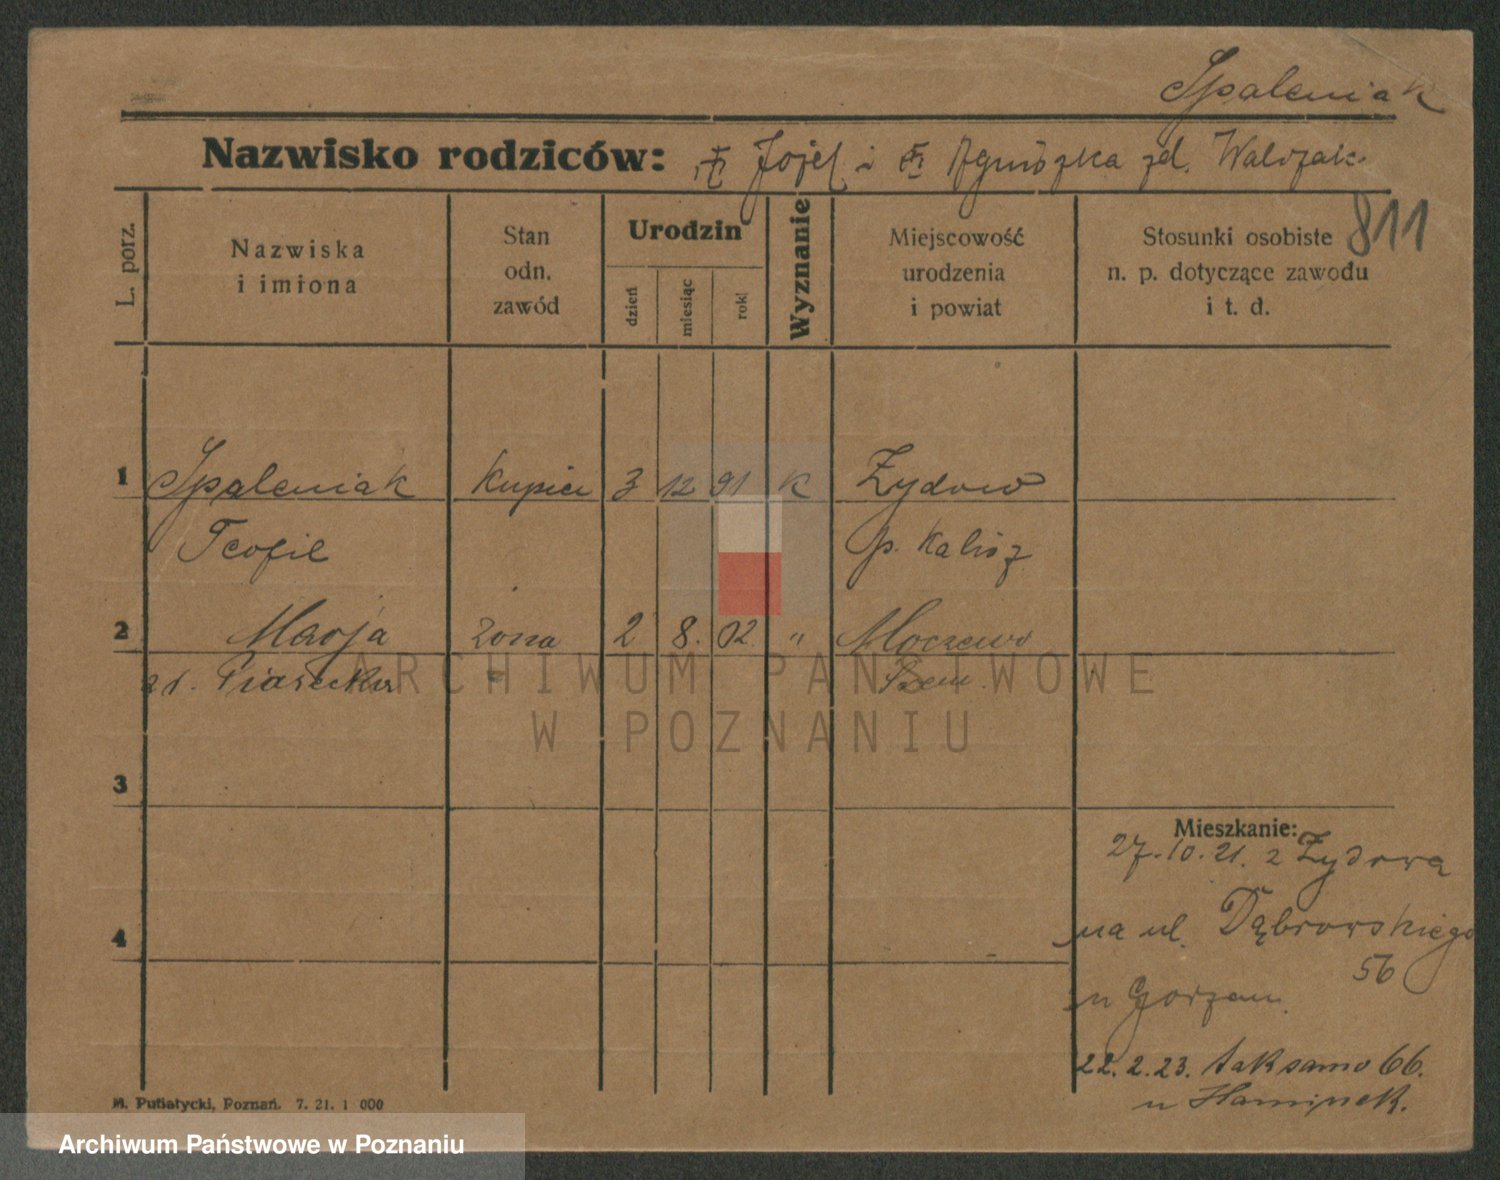 Spaleniak
Nazwisko rodziców: Józef i Agnieszka zd. Walczak
811
L. porz.
Nazwiska i imiona
Stan odn. zawód
Urodzin
dzień
miesiąc
rok
Wyznanie
Miejscowość urodzenia i powiat
Stosunki osobiste n. p. dotyczące zawodu i t. d.
1 Spaleniak kupiec 3 12 91 K Żydowo
Teofil p. Kalisz
2 Marja żona 2 8. 02 " Moczewo
zd. Piasecka
ARCHIWUM PAŃSTWOWE
W POZNANIU
3
Mieszkanie:
27.10.21. z Żydowa
4
na ul. Dąbrowskiego
56
u
22.2.23. tak samo 66.
u
M. Putiatycki, Poznań. 7. 21. 1 000
Archiwum Państwowe w Poznaniu